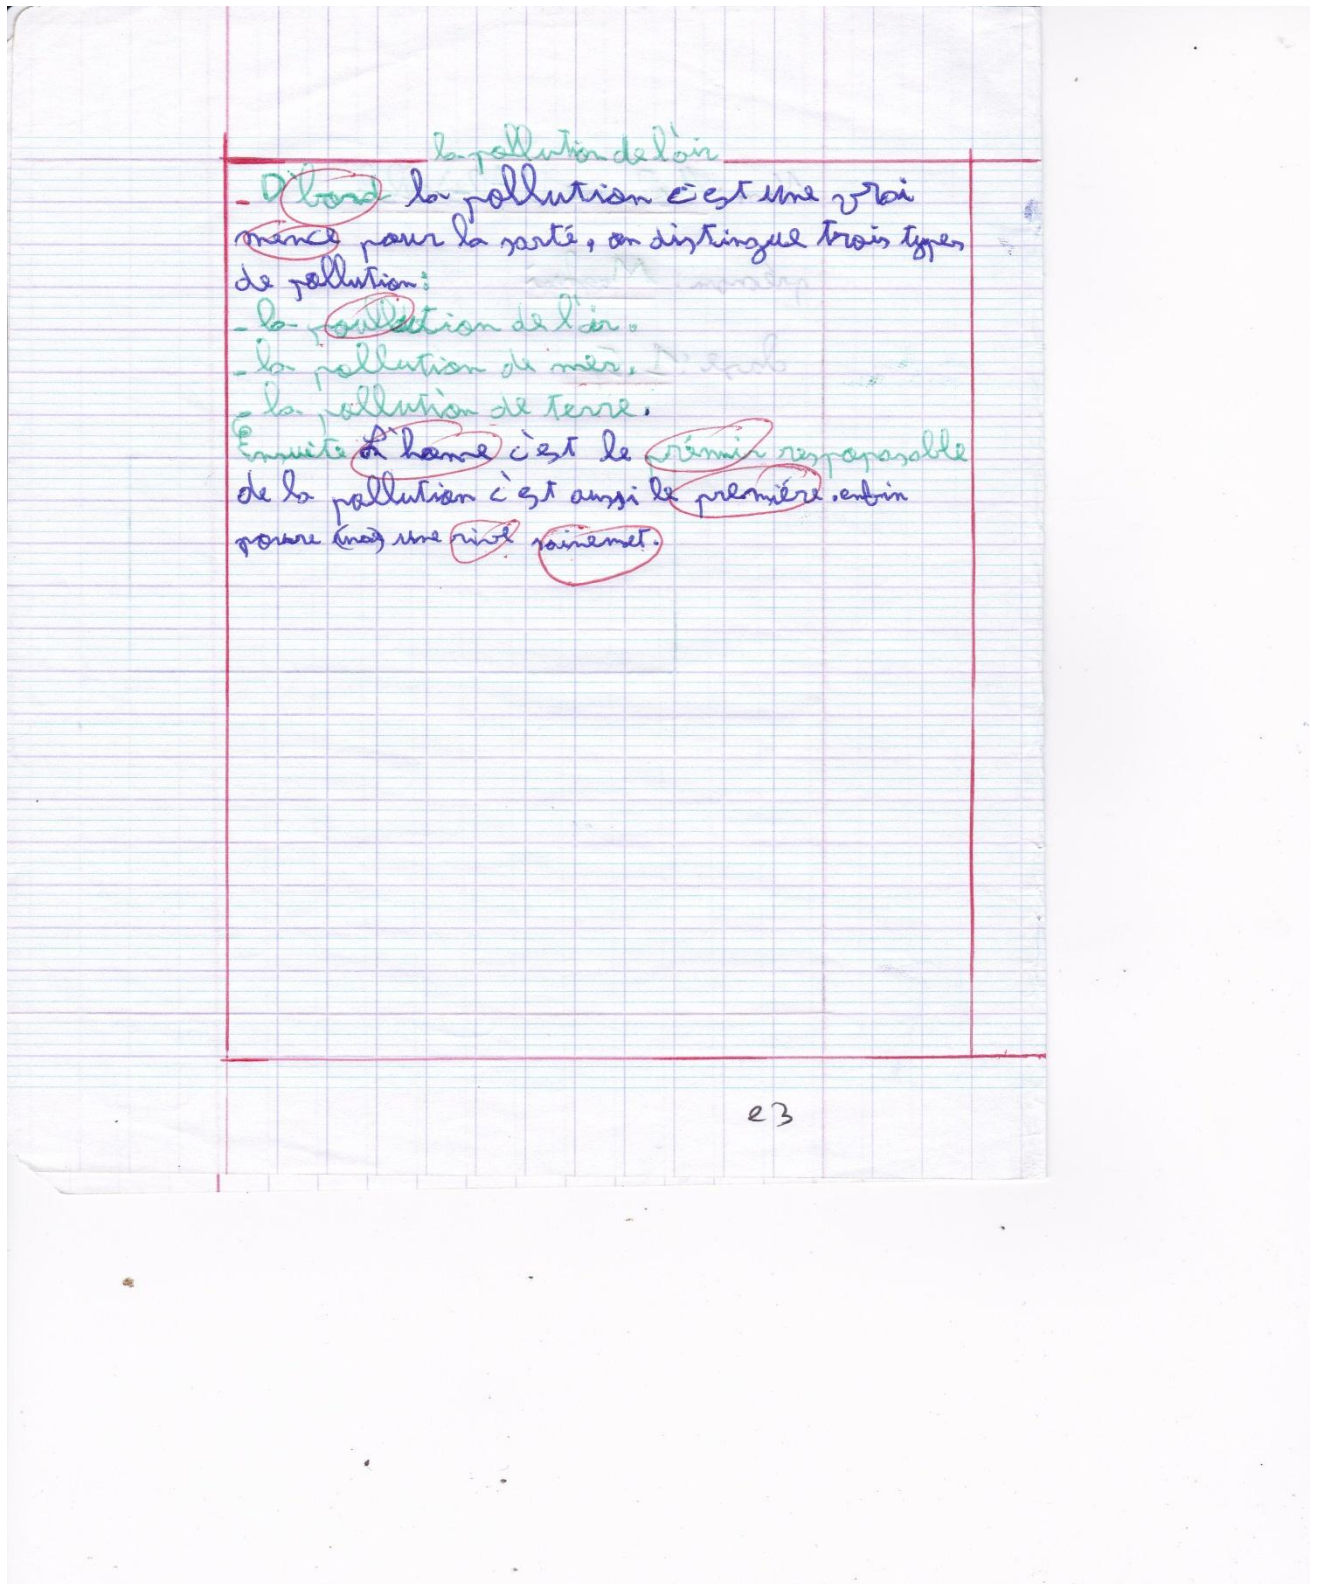 la pollution de l'air
- D'bord la pollution c'est une vrai
mence pour la sarté, on distingue trois types
de pollution:
- la poullution de l'air.
- la pollution de mer.
- la pollution de terre.
Ensuite L'home c'est le rémir respoposable
de la pollution c'est aussi le première. enfin
pource (nos) une rive sainemet.
e3